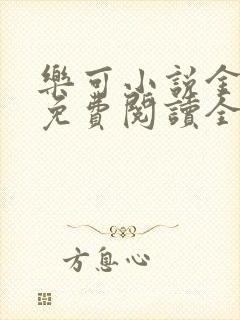 樂可小說全
免費閱讀全
方息心